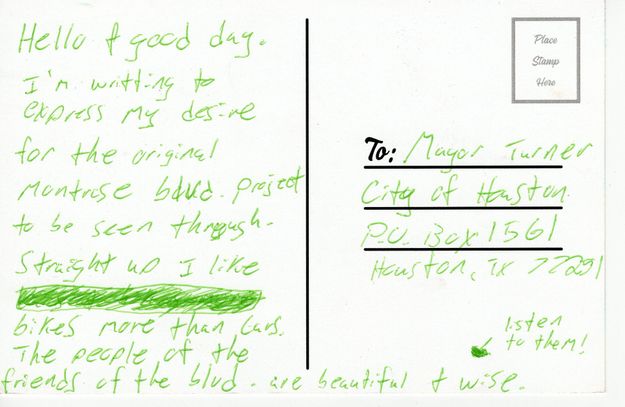 Hello & good day.
I'm writting to
express my desire
for the original
Montrose blvd. project
to be seen through.
Straight up I like
bikes more than cars.
The people of the
friends of the blvd. are beautiful & wise.
Place
Stamp
Here
To: Mayor Turner
City of Houston
P.O. Box 1561
Houston, TX 77251
listen
to them!